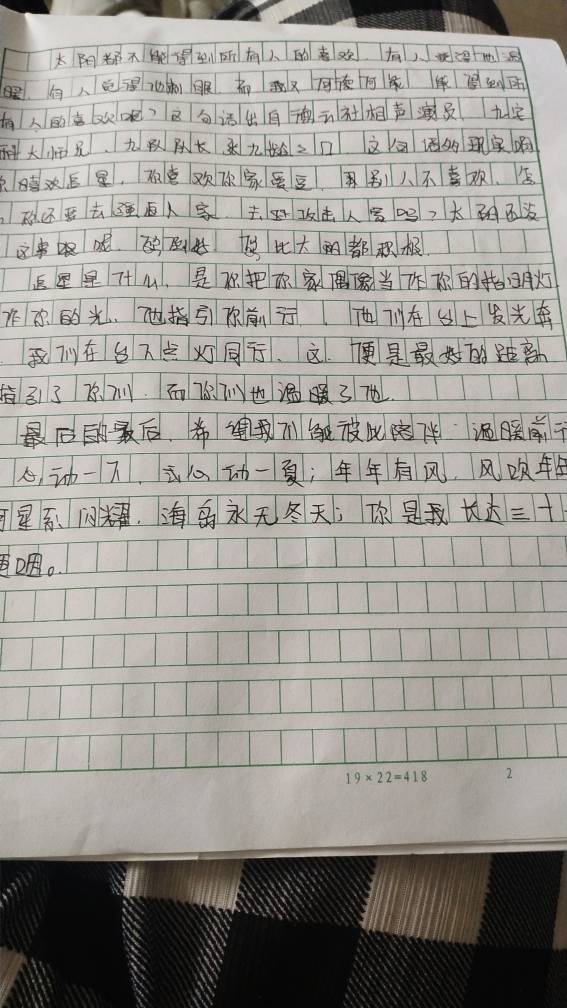 太阳都不能得到所有人的喜欢.有人觉得他温
暖.有人觉得他刺眼.而我又何德何能 能得到所
有人的喜欢呢?这句话出自德云社相声演员.九字
科大师兄、九队队长 张九龄之口 这句话的现实啊
喜欢追星,你喜欢你家爱豆.用别人不喜欢.怎
你还要去强迫人家.去攻击人家吗?太阳还没
这举呢 你比太阳都积极.
追星是什么,是你把你家偶像当作你的指明灯
作你的光、他指引你前行.他们在台上发光奔
我们在台下点灯同行、这.便是最好的距离
指引了你们.而你们也温暖了他.
最后的最后.希望我们能彼此陪伴.温暖前行
心动一下,就心动一夏;年年有风.风吹年年
星系闪耀.海岛永无冬天;你是我长达三十
嗯。
19×22=418 2